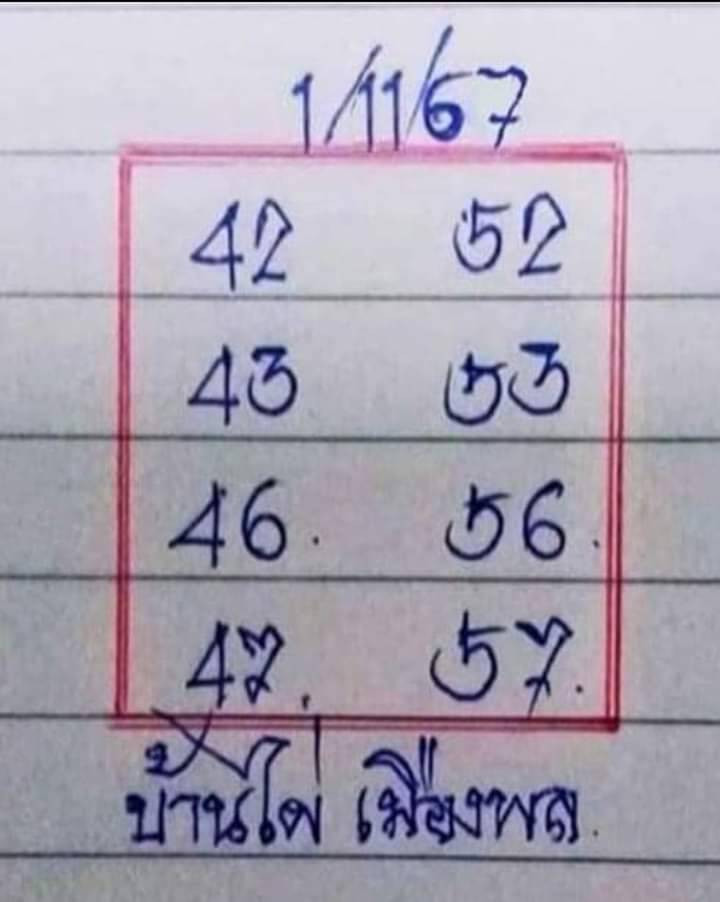 1/11/67
42 52
43 53
46. 56.
47. 57.
บ้านไผ่ เมืองพล.